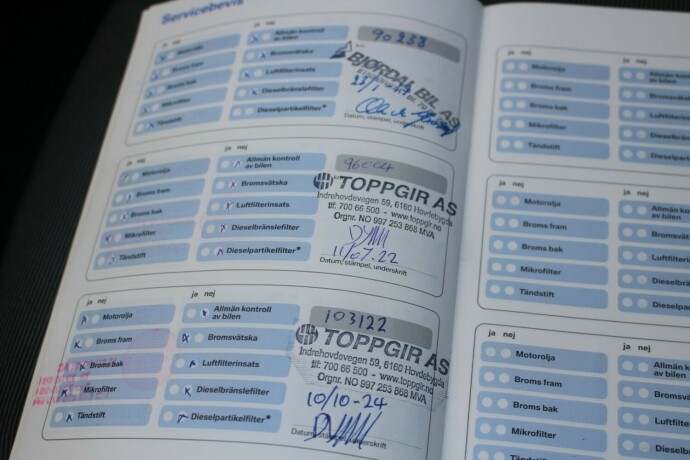 Servicebevis
ja nej
ja nej
90238
Motorolja
Allmän kontroll
av bilen
Broms fram
Bromsvätska
Broms bak
Luftfilterinsats
Mikrofilter
Dieselbränslefilter
Tändstift
Dieselpartikelfilter*
BJØRDAL BIL AS
Datum, stämpel, underskrift
ja nej
ja nej
96004
Motorolja
Allmän kontroll
av bilen
Broms fram
Bromsvätska
Broms bak
Luftfilterinsats
Mikrofilter
Dieselbränslefilter
Tändstift
Dieselpartikelfilter*
TOPPGIR AS
Indrehovdevegen 59, 6160 Hovdebygda
tlf: 700 66 500 - www.toppgir.no
Orgnr. NO 997 253 868 MVA
11/07.22
Datum, stämpel, underskrift
ja nej
ja nej
103122
Motorolja
Allmän kontroll
av bilen
Broms fram
Bromsvätska
Broms bak
Luftfilterinsats
Mikrofilter
Dieselbränslefilter
Tändstift
Dieselpartikelfilter*
TOPPGIR AS
Indrehovdevegen 59, 6160 Hovdebygda
tlf: 700 66 500 - www.toppgir.no
Orgnr. NO 997 253 868 MVA
10/10-24
Datum, stämpel, underskrift
ja nej
ja nej
Motorolja
Allmän
av bilen
Broms fram
Bromsvätska
Broms bak
Luftfilterinsats
Mikrofilter
Dieselbränslefilter
Tändstift
Dieselpartikelfilter
ja nej
ja nej
Motorolja
Allmän
av bilen
Broms fram
Bromsvätska
Broms bak
Luftfilterinsats
Mikrofilter
Tändstift
ja nej
ja nej
Motorolja
Broms fram
Broms bak
Mikrofilter
Tändstift